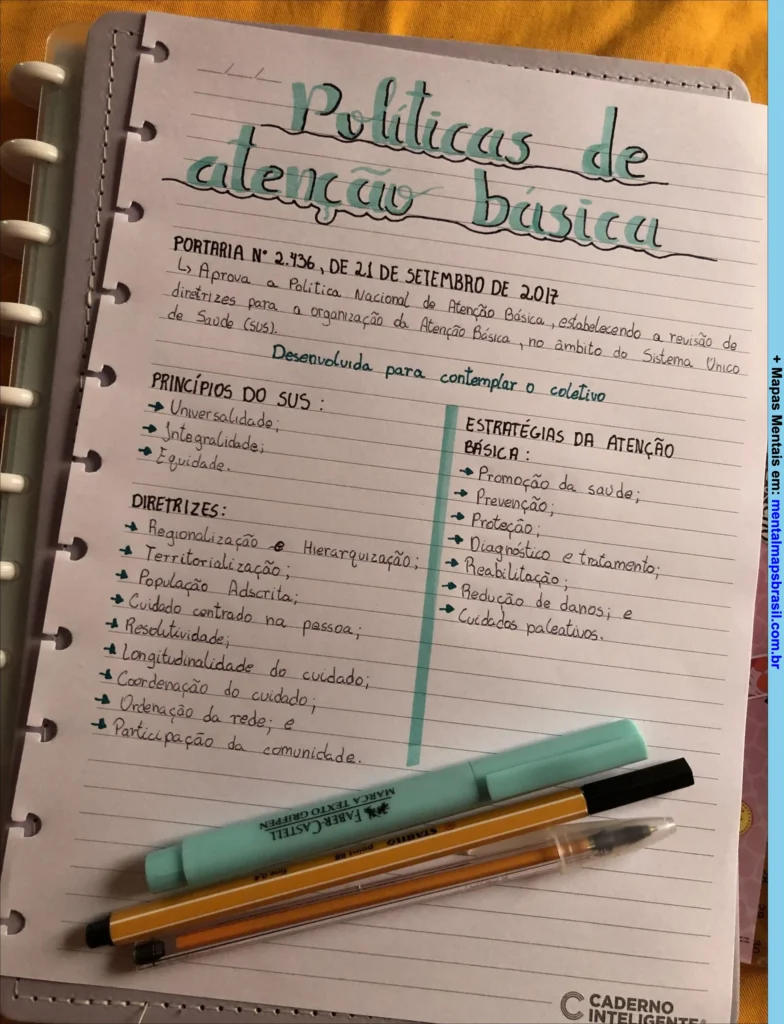 Políticas de
atenção básica
PORTARIA N° 2.436, DE 21 DE SETEMBRO DE 2017
↳ Aprova a Política Nacional de Atenção Básica, estabelecendo a revisão de
diretrizes para a organização da Atenção Básica, no âmbito do Sistema Único
de Saúde (SUS).
Desenvolvida para contemplar o coletivo
PRINCÍPIOS DO SUS:
→ Universalidade;
→ Integralidade;
→ Equidade.
DIRETRIZES:
→ Regionalização e Hierarquização;
→ Territorialização;
→ População Adscrita;
→ Cuidado centrado na pessoa;
→ Resolutividade;
→ Longitudinalidade do cuidado;
→ Coordenação do cuidado;
→ Ordenação da rede; e
→ Participação da comunidade.
ESTRATÉGIAS DA ATENÇÃO
BÁSICA:
→ Promoção da saúde;
→ Prevenção;
→ Proteção;
→ Diagnóstico e tratamento;
→ Reabilitação;
→ Redução de danos; e
→ Cuidados paleativos.
FABER-CASTELL
MARCA TEXTO GRIFPEN
STABILO
point 88
fine 0,4
CADERNO
INTELIGENTE®
+ Mapas Mentais em: mentalmapsbrasil.com.br